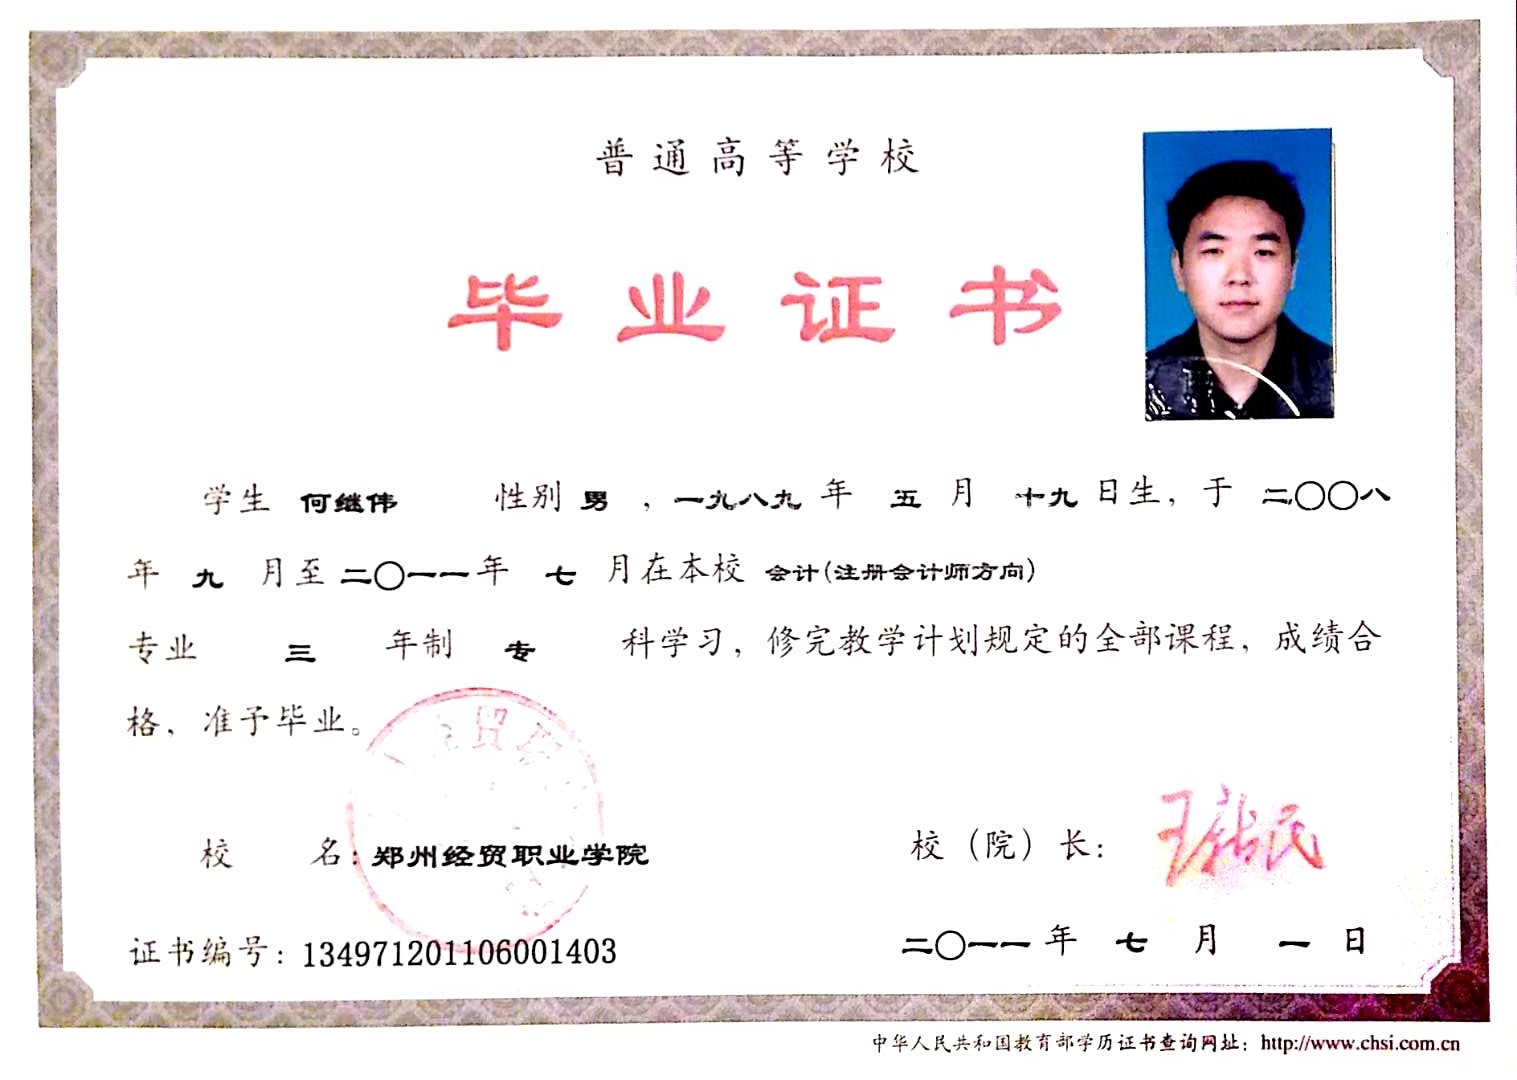 普通高等学校
毕业证书
学生 何继伟 性别 男 ，一九八九 年 五 月 十九 日生，于 二〇〇八
年 九 月至 二〇一一 年 七 月在本校 会计(注册会计师方向)
专业 三 年制 专 科学习，修完教学计划规定的全部课程，成绩合
格，准予毕业。
校 名：郑州经贸职业学院
校（院）长：
证书编号：134971201106001403
二〇一一 年 七 月 一 日
中华人民共和国教育部学历证书查询网址：http://www.chsi.com.cn